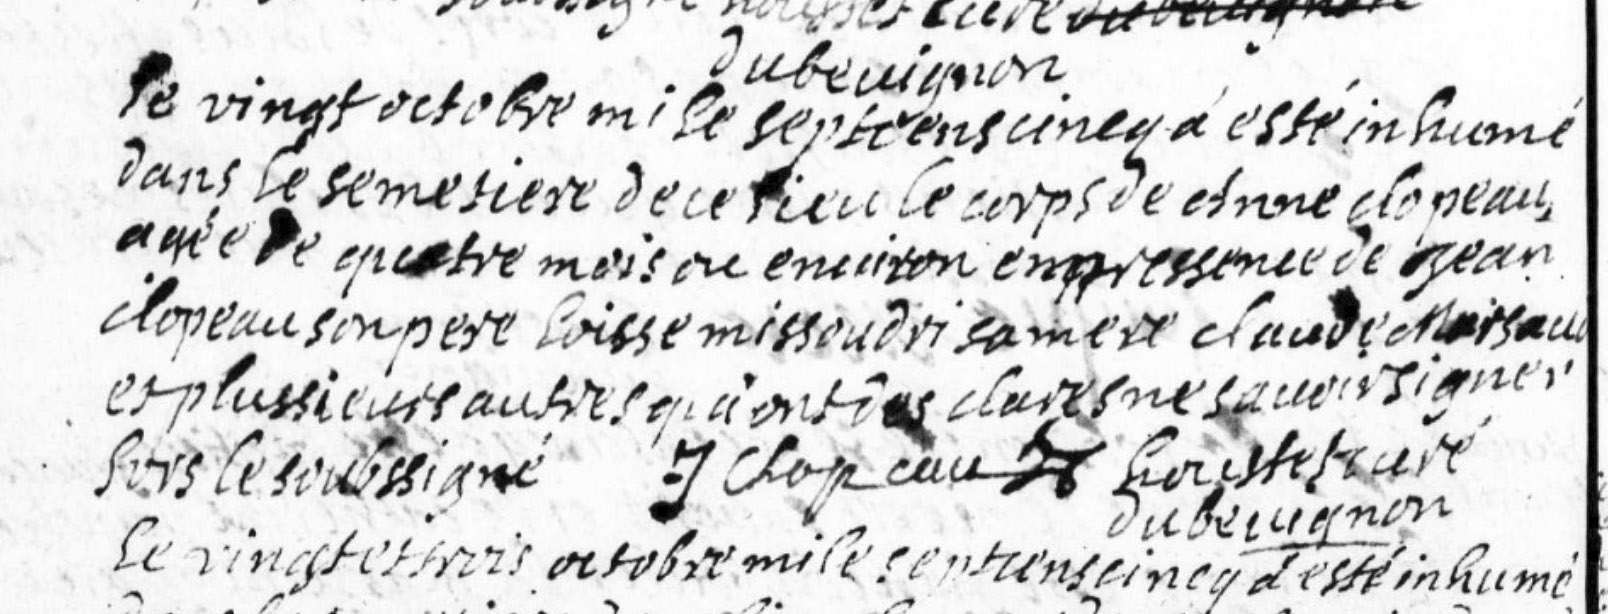 curé dubeuignon
dubeuignon
le vingt octobre mile septcens cincq a esté inhumé
dans le semetiere de ce lieu le corps de Anne clopeau
agée de quatre mois ou enuiron en pressence de Jean
clopeau son pere loisse missoudri sa mere claude
et plussieurs autres qui ont des clares ne sauoir signer
hors le soubssigné J Clopeau houstet curé
dubeuignon
Le vingt et trois octobre mile septcens cincq a esté inhumé